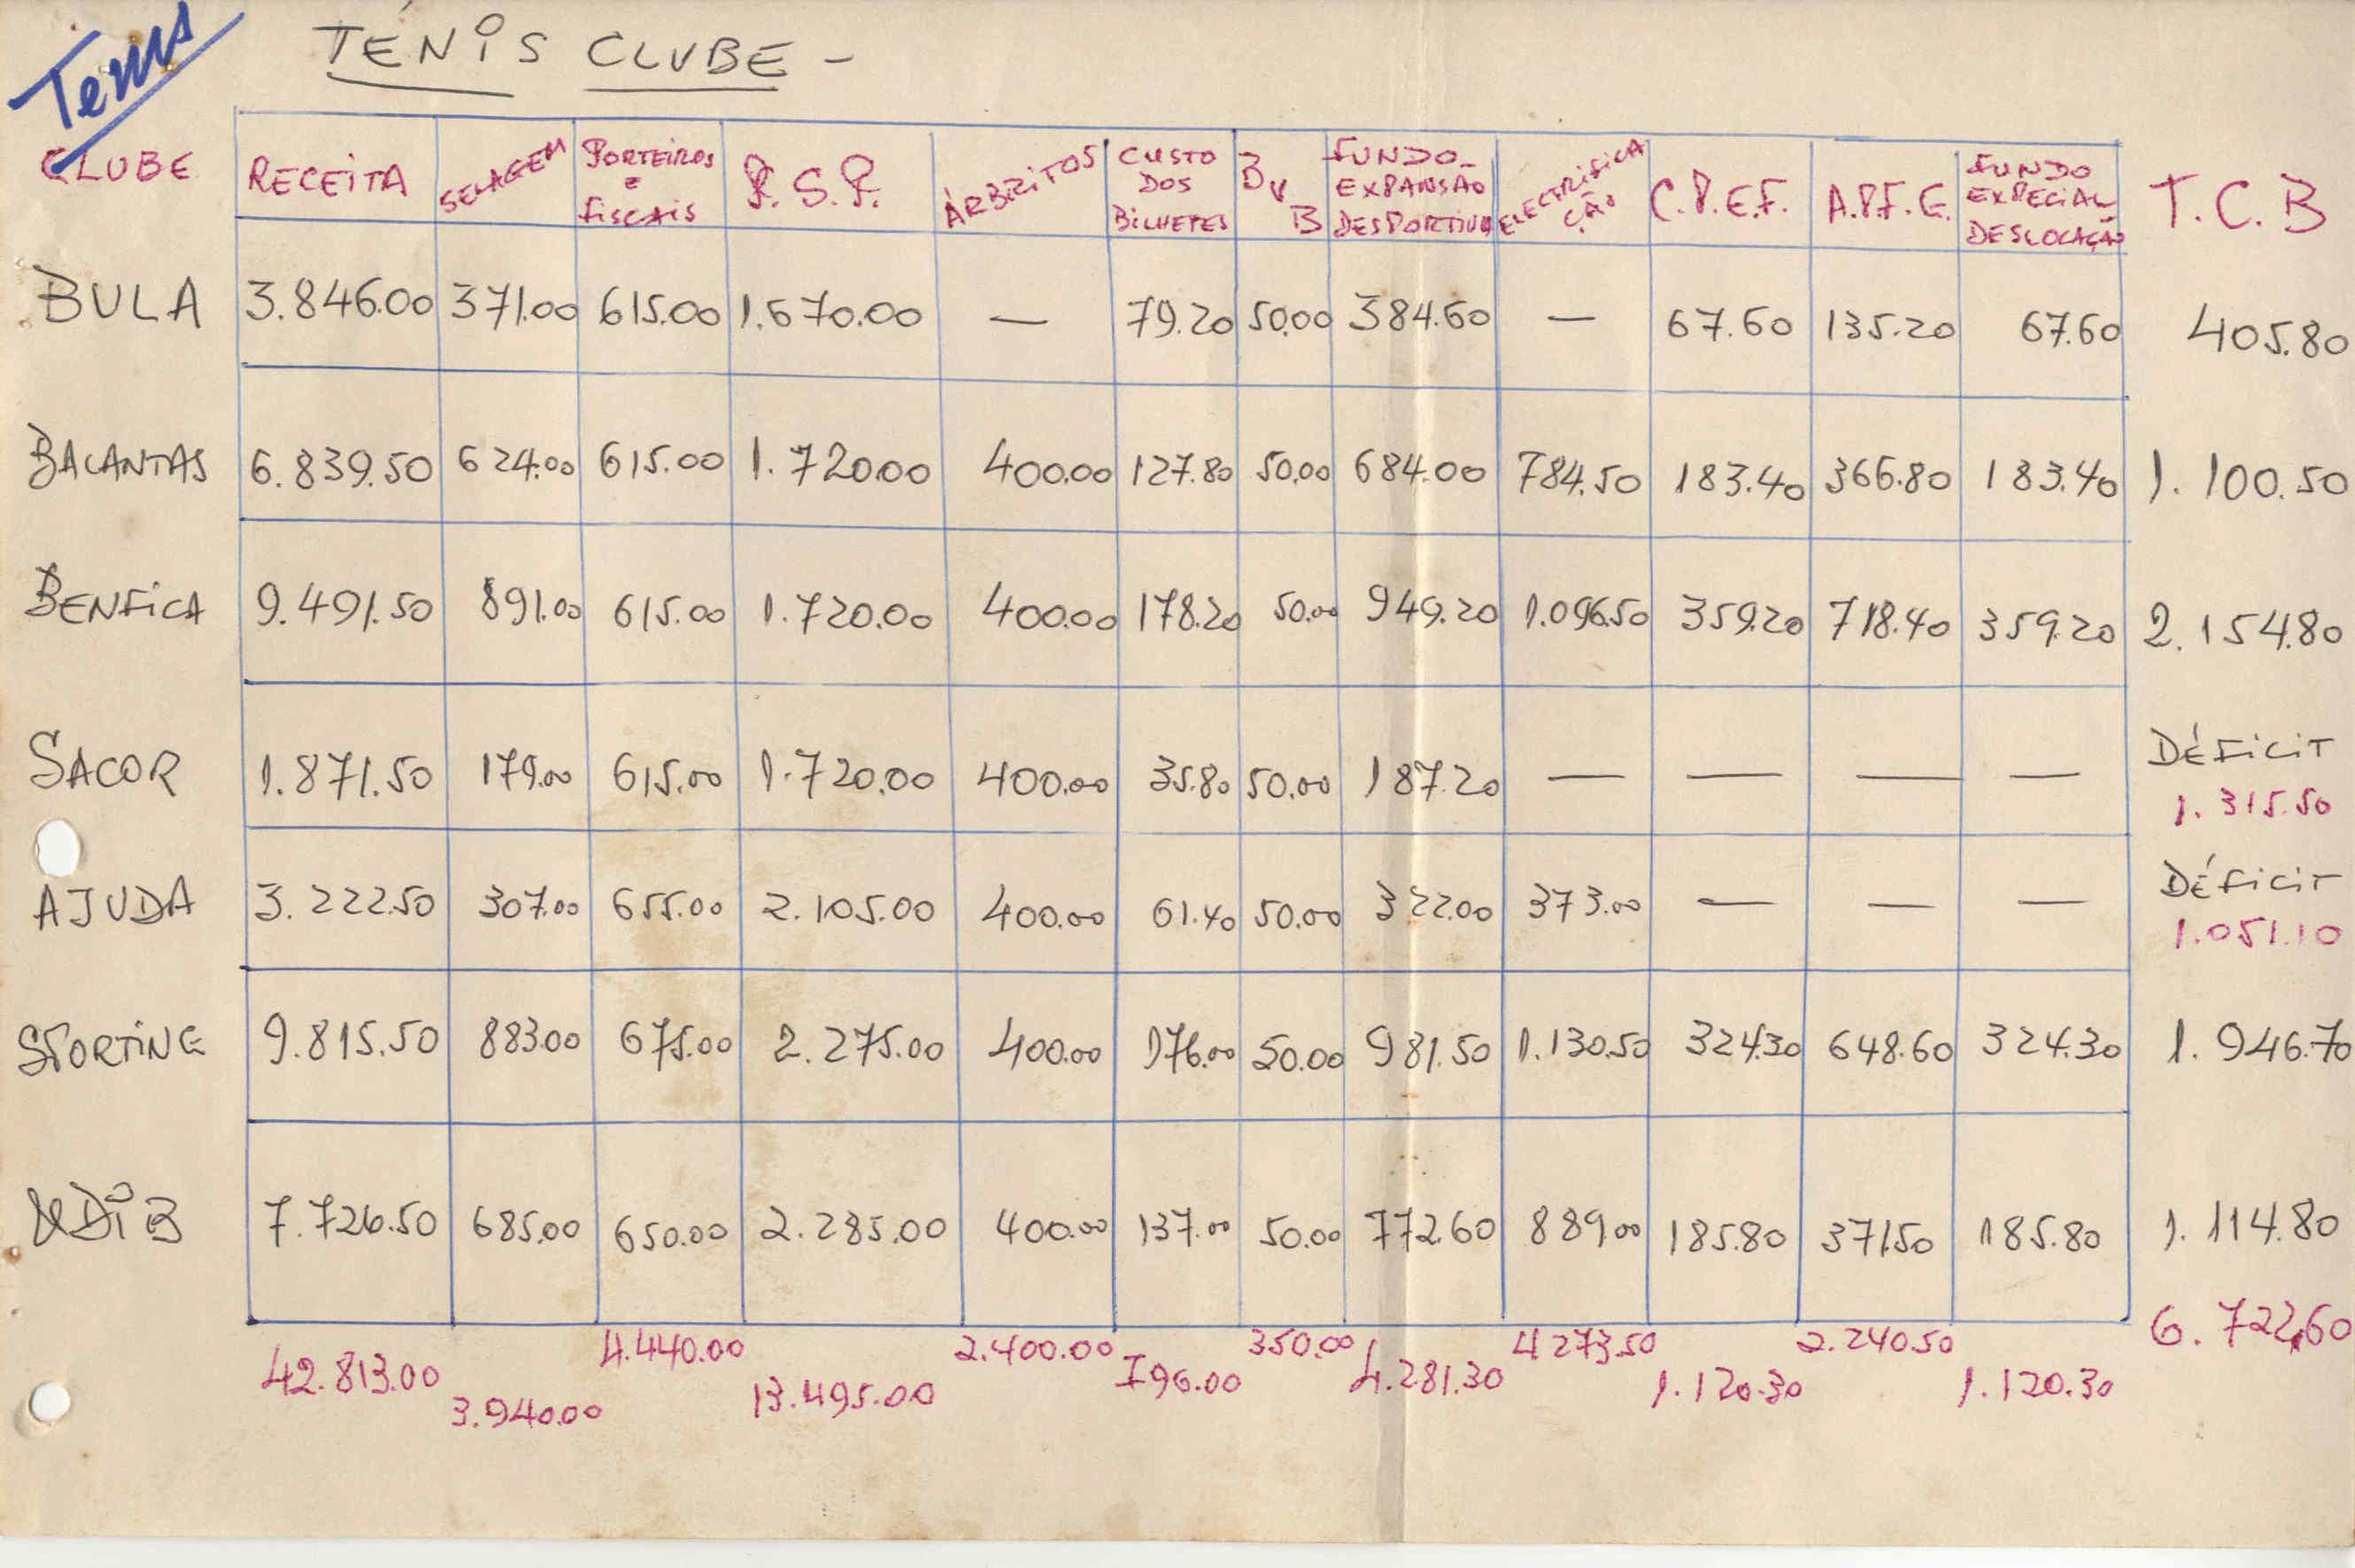 Tenis
TÉNIS CLUBE -
CLUBE RECEITA SELAGEM PORTEIROS e FISCAIS P.S.P. ÁRBRITOS CUSTO DOS BILHETES B v B FUNDO EXPANSÃO DESPORTIVA ELECTRIFICAÇÃO C.P.E.F. A.P.F.G. FUNDO EXPECIAL DESLOCAÇÃO T.C.B
BULA 3.846.00 371.00 615.00 1.670.00 — 79.20 50.00 384.60 — 67.60 135.20 67.60 405.80
BALANTAS 6.839.50 624.00 615.00 1.720.00 400.00 127.80 50.00 684.00 784.50 183.40 366.80 183.40 1.100.50
BENFICA 9.491.50 891.00 615.00 1.720.00 400.00 178.20 50.00 949.20 1.096.50 359.20 718.40 359.20 2.154.80
SACOR 1.871.50 179.00 615.00 1.720.00 400.00 35.80 50.00 187.20 — — — — DÉFICIT
1.315.50
AJUDA 3.222.50 307.00 655.00 2.105.00 400.00 61.40 50.00 322.00 373.00 — — — DÉFICIT
1.051.10
SPORTING 9.815.50 883.00 675.00 2.275.00 400.00 176.00 50.00 981.50 1.130.50 324.30 648.60 324.30 1.946.70
UDIB 7.726.50 685.00 650.00 2.285.00 400.00 137.00 50.00 772.60 889.00 185.80 371.50 185.80 1.114.80
42.813.00 3.940.00 4.440.00 13.495.00 2.400.00 796.00 350.00 4.281.30 4273.50 1.120.30 2.240.50 1.120.30 6.722,60